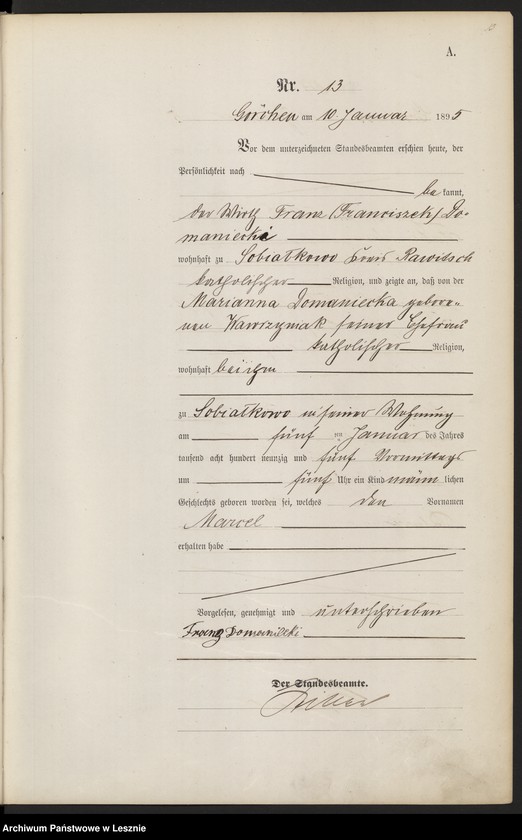 A.
Nr. 13
Görchen am 10 Januar 1895
Vor dem unterzeichneten Standesbeamten erschien heute, der
Persönlichkeit nach
bekannt,
der Wirth Franz (Franciszek) Do-
maniecki
wohnhaft zu Sobialkowo Kreis Rawitsch
katholischer Religion, und zeigte an, daß von der
Marianna Domaniecka gebore-
nen Wawrzyniak seiner Ehefrau
katholischer Religion,
wohnhaft bei ihm
zu Sobialkowo in seiner Wohnung
am fünf ten Januar des Jahres
tausend acht hundert neunzig und fünf Vormittags
um fünf Uhr ein Kind männlichen
Geschlechts geboren worden sei, welches den Vornamen
Marcel
erhalten habe
Vorgelesen, genehmigt und unterschrieben
Franz Domaniecki
Der Standesbeamte.
Archiwum Państwowe w Lesznie